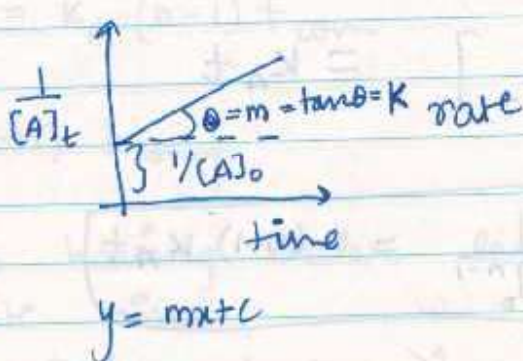 1/[A]t
θ = m = tanθ = K rate
} 1/[A]₀
time
y = mx+c